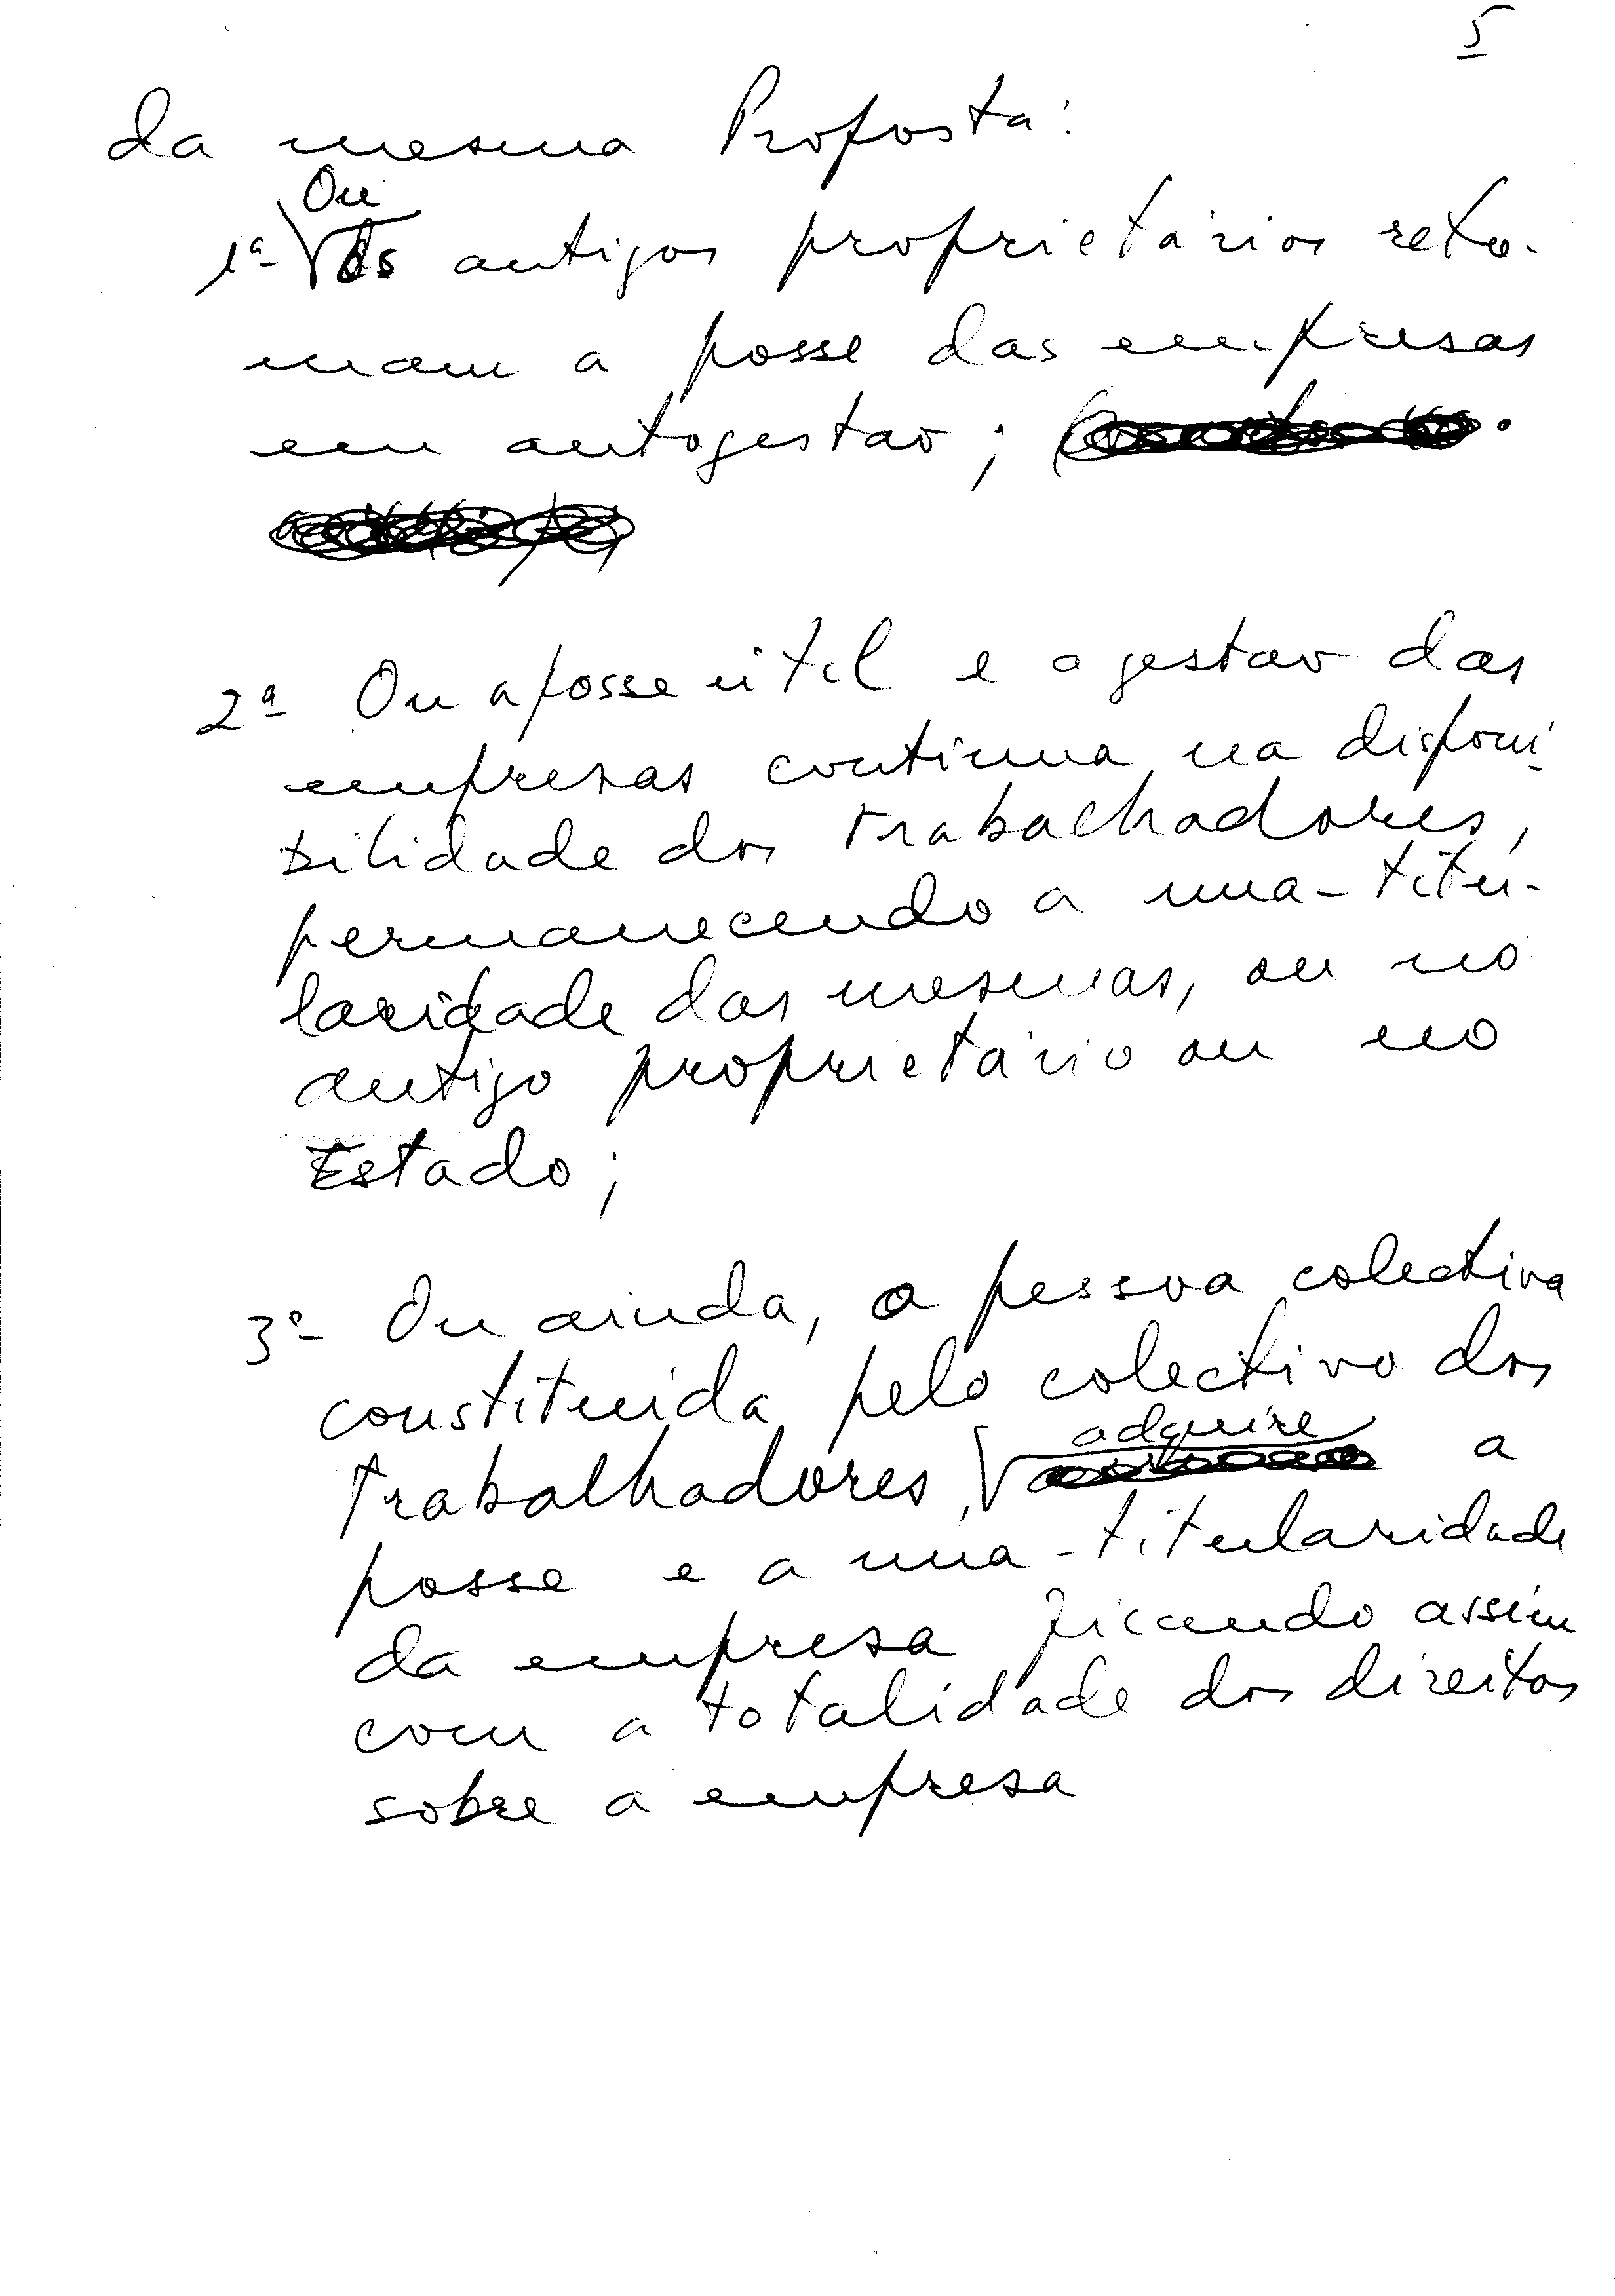 5
da mesma Proposta:
1ª Ou os antigos proprietários reto-
mam a posse das empresas
em autogestão;
2ª Ou a posse útil e a gestão das
empresas continua na disponi-
bilidade dos trabalhadores,
permanecendo a nua-titu-
laridade das mesmas, ou no
antigo proprietário ou no
Estado;
3ª Ou ainda, a pessoa colectiva
constituida pelo colectivo dos
trabalhadores, adquire a
posse e a nua-titularidade
da empresa ficando assim
com a totalidade dos direitos
sobre a empresa